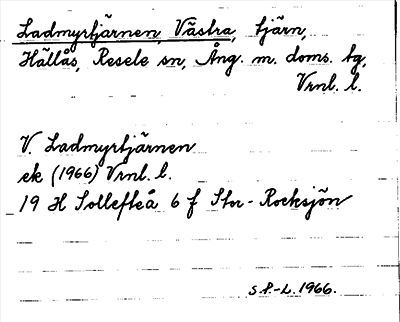 Ladmyrtjärnen, Västra, tjärn,
Hällås, Resele sn, Ång. m. doms. tg,
Vrnl. l.
V. Ladmyrtjärnen
ek (1966) Vrnl. l.
19 H Sollefteå 6 f Stor-Rocksjön
S P.-L. 1966.